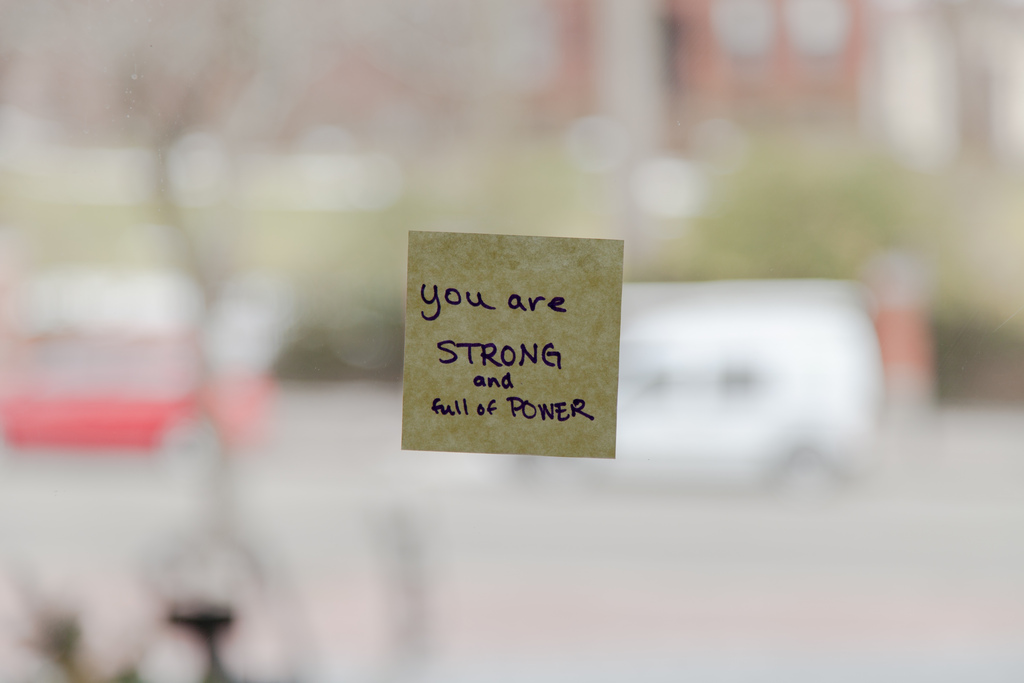 you are
STRONG
and
full of POWER